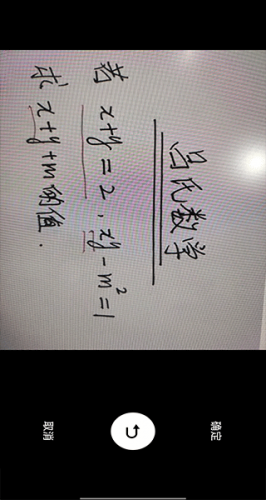 吕氏数学
若 x+y=2，xy-m²=1
求 x+y+m的值.
确定
取消